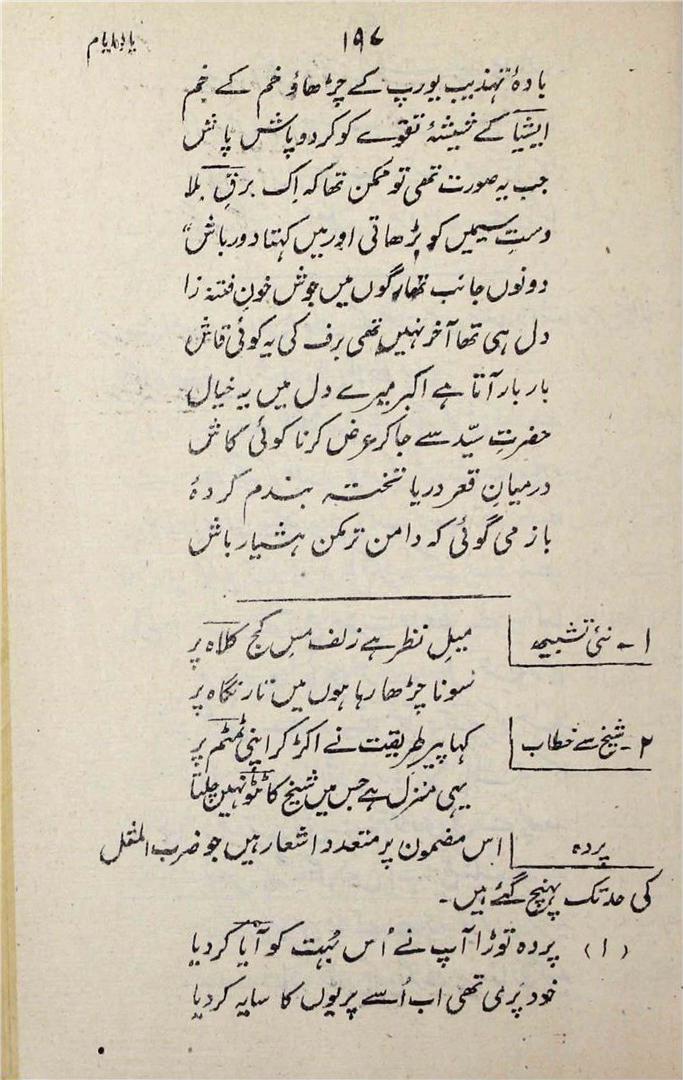 یادِ ایام
۱۹۷
بادۂ تہذیب یورپ کے چڑھاؤ خم کے خم
ایشیا کے شیشۂ تقوے کو کردو پاش پاش
جب یہ صورت تھی تو ممکن تھا کہ اک برقِ بلا
دستِ سیمیں کو بڑھاتی اور میں کہتا دور باش"
دونوں جانب تھا رگوں میں جوش خونِ فتنہ زا
دل ہی تھا آخر نہیں تھی برف کی یہ کوئی قاش
بار بار آتا ہے اکبر میرے دل میں یہ خیال
حضرتِ سیّد سے جاکر عرض کرتا کوئی کاش
درمیانِ قعر دریا تختہ بندم کردۂ
باز می گوئی کہ دامن تر مکن ہشیار باش
۱۔ نئی تشبیہ
میلِ نظر ہے زلف مس کج کلاہ پر
سونا چڑھا رہا ہوں میں تار نگاہ پر
۲۔ شیخ سے خطاب
کہا پیر طریقت نے اکڑ کر اپنی ٹمٹم پر
یہی منزل ہے جس میں شیخ کا ٹٹو نہیں چلتا
پردہ
اس مضمون پر متعدد اشعار ہیں جو ضرب المثل
کی حد تک پہنچ گئے ہیں۔
(۱) پردہ توڑا آپ نے اُس بُت کو آیا کردیا
خود پری تھی اب اُسے پریوں کا سایہ کردیا